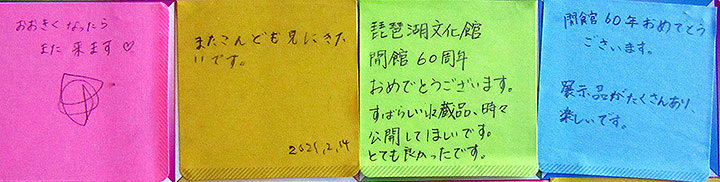 おおきく なったら
また 来ます♡
またこんども見にきた
いです。
2021,2,14
琵琶湖文化館
開館60周年
おめでとうございます。
すばらしい収蔵品、時々
公開してほしいです。
とても良かったです。
開館60年おめでとう
ございます。
展示品がたくさんあり、
楽しいです。